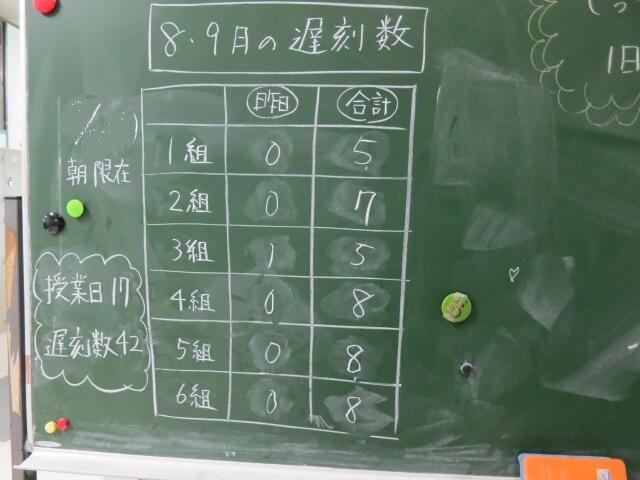 8.9月の遅刻数
昨日 合計
1組 0 5
2組 0 7
3組 1 5
4組 0 8
5組 0 8
6組 0 8
朝限在
授業日17
遅刻数42
1日